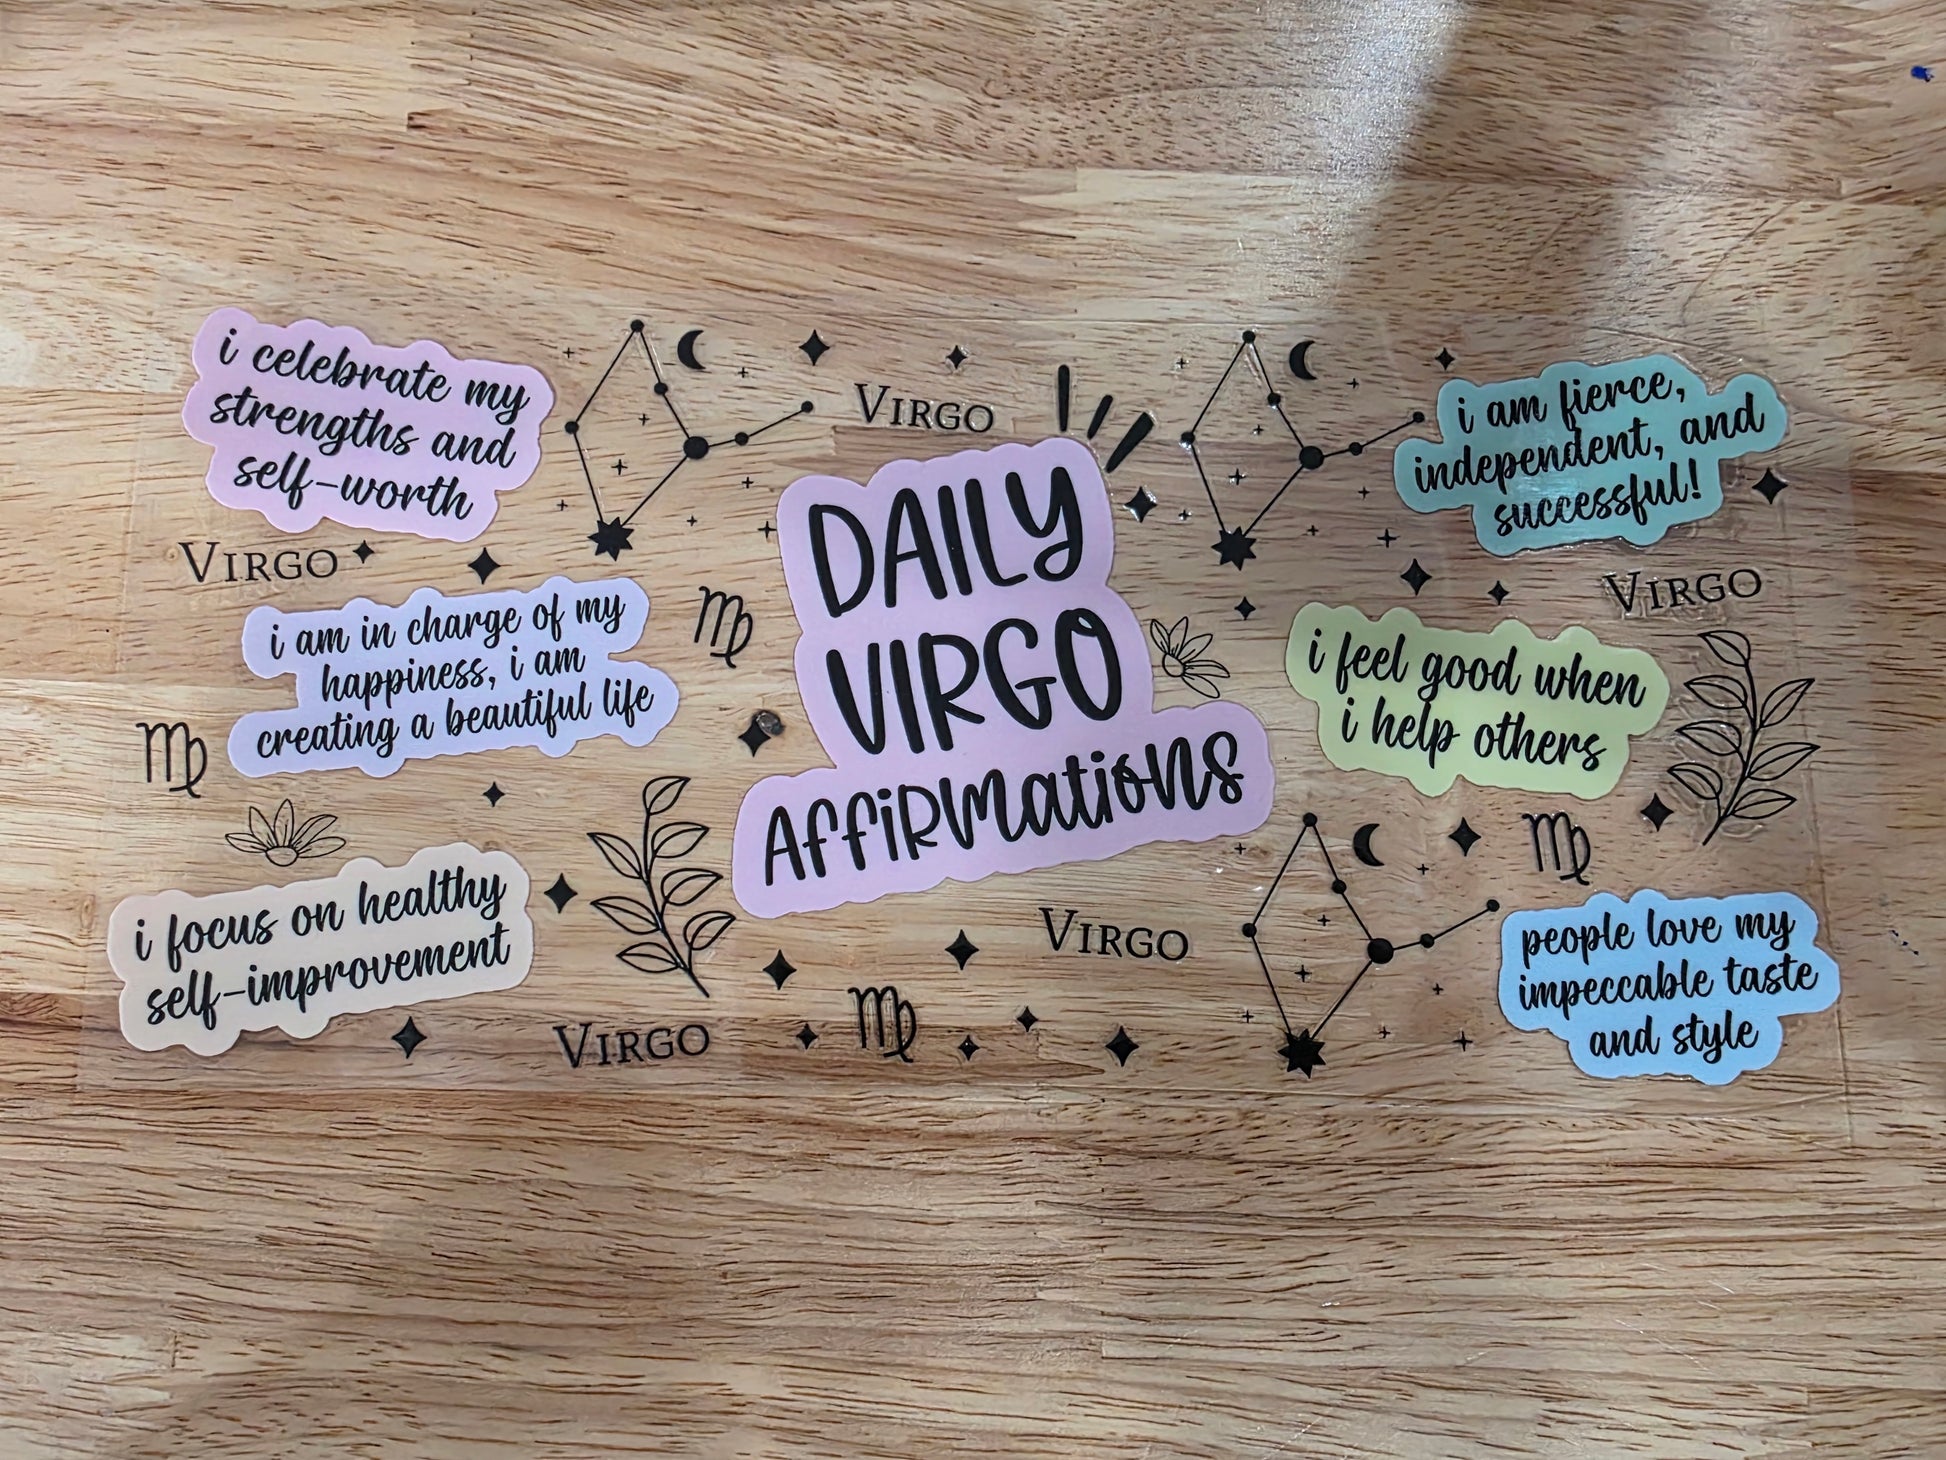 i celebrate my
strengths and
self-worth
VIRGO
i am in charge of my
happiness, i am
creating a beautiful life
i focus on healthy
self-improvement
VIRGO
VIRGO
DAILY
VIRGO
AFFIRMATIONS
VIRGO
i am fierce,
independent, and
successful!
VIRGO
i feel good when
i help others
people love my
impeccable taste
and style